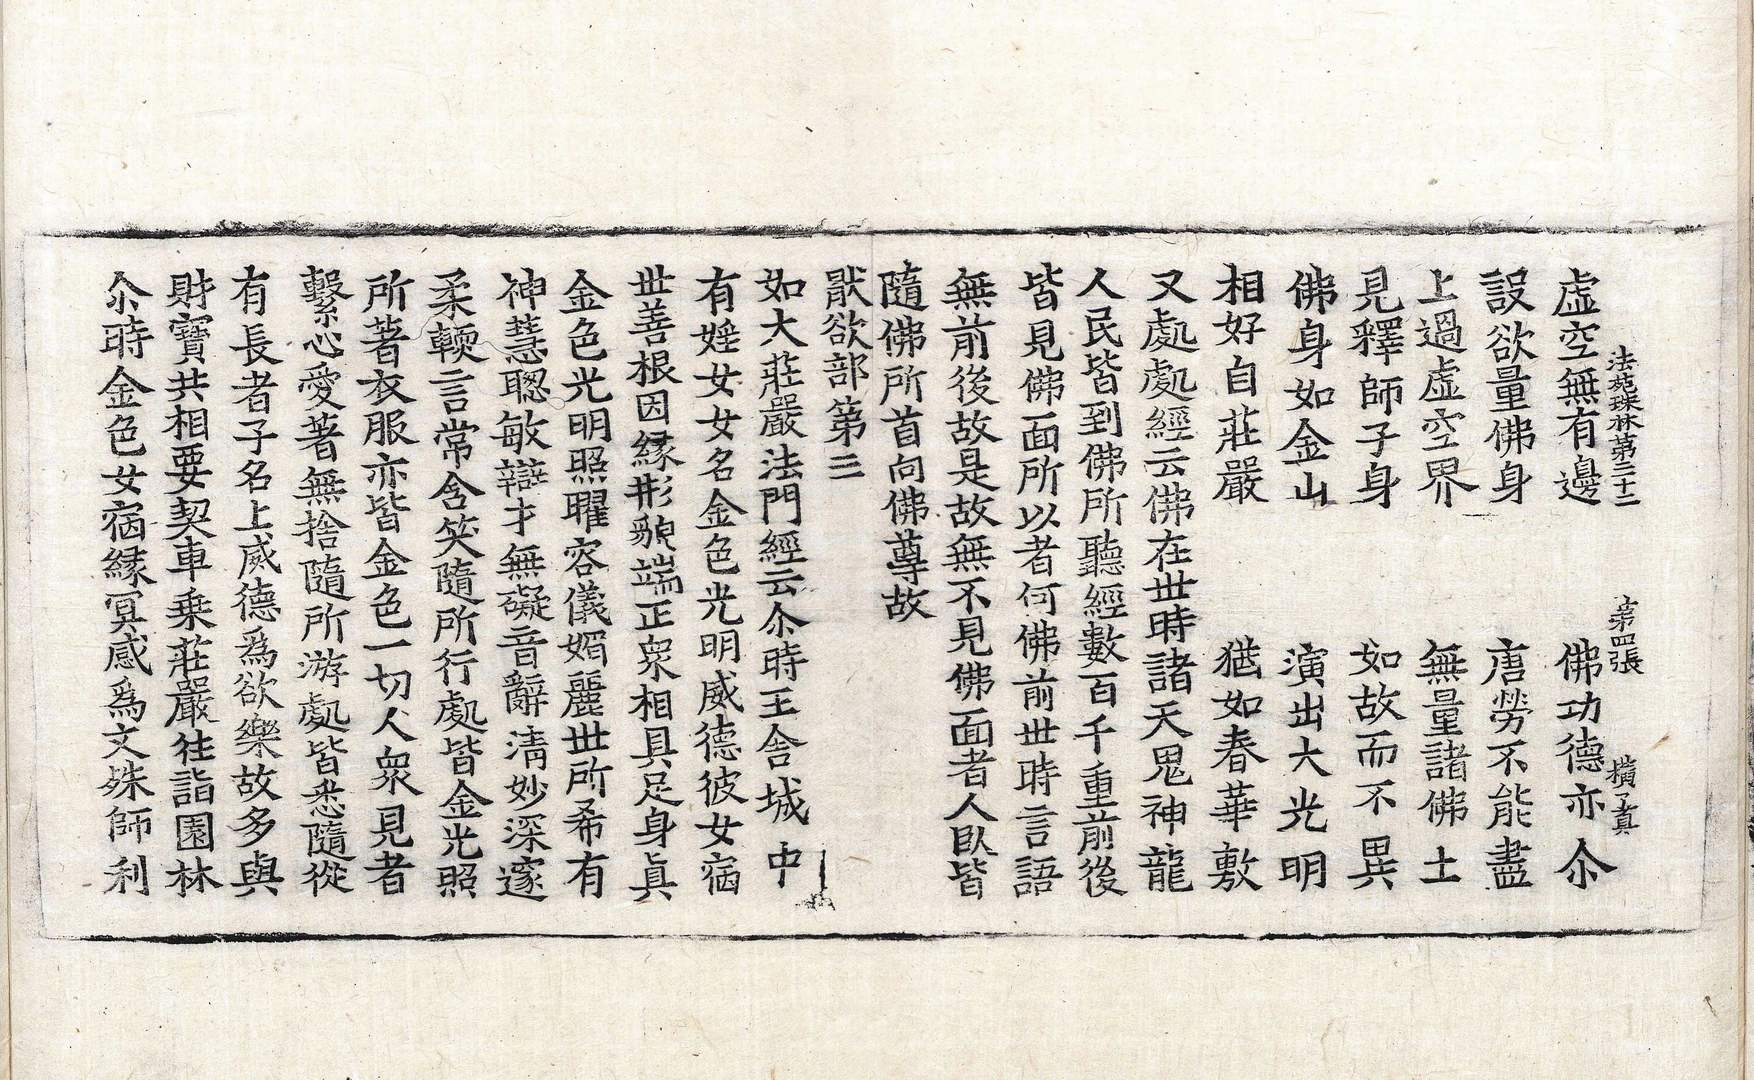 法苑珠林第三十二 第四張 橫字真
虛空無有邊 佛功德亦尒
設欲量佛身 唐勞不能盡
上過虛空界 無量諸佛土
見釋師子身 如故而不異
佛身如金山 演出大光明
相好自莊嚴 猶如春華敷
又處處經云佛在世時諸天鬼神龍
人民皆到佛所聽經數百千重前後
皆見佛面所以者何佛前世時言語
無前後故是故無不見佛面者人臥皆
隨佛所首向佛尊故
猒欲部第三
如大莊嚴法門經云尒時王舍城中
有婬女女名金色光明威德彼女宿
世善根因緣形貌端正衆相具足身真
金色光明照曜容儀媚麗世所希有
神慧聰敏辯才無礙音辭清妙深邃
柔輭言常含笑隨所行處皆金光照
所著衣服亦皆金色一切人衆見者
繫心愛著無捨隨所游處皆悉隨從
有長者子名上威德爲欲樂故多與
財寶共相要契車乗莊嚴往詣園林
尒時金色女宿緣冥感爲文殊師利